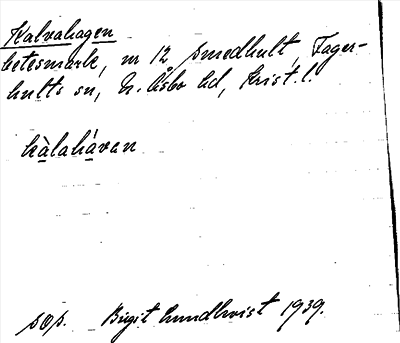 Kalvahagen
betesmark, nr 12 Smedhult, Fager-
hults sn, N. Åsbo hd, Krist. l.
kàlahávan
sop. Birgit Lundkvist 1939.